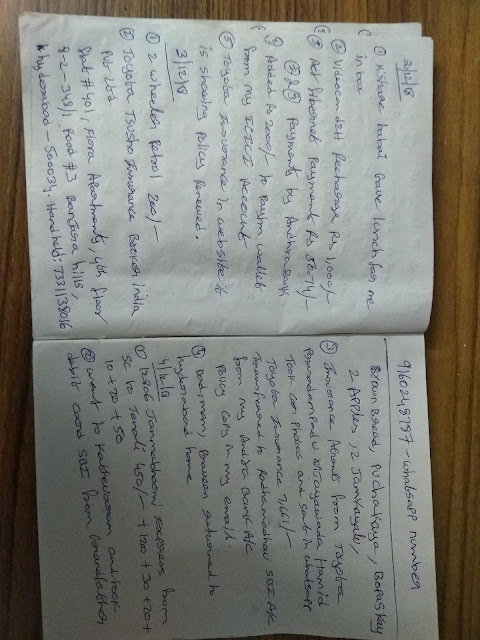 2/12/18
① Kishore babai Gave lunch for me
in box
② Videocon d2h Recharge Rs 1,000/-
③ Act fibernet Payment Rs 8074/-
② & ③ Payments by Andhra Bank
④ Added Rs 2000/- to Paytm wallet
from my ICICI Account
⑤ Toyota Insurance in website it
is showing policy renewed.
3/12/18
① 2 wheeler Petrol 200/-
② Toyota Tsusho Insurance Broker India
Pvt Ltd
Flat # 401, Flora Apartments, 4th floor
8-2-348/1 Road #3 Banjara hills,
hyderabad - 500034. Hand held: 7331138016
9160248787 - whatsapp number
Brown Bread, Puchakaya, Bopaskay
2 Apples, 2 Jamkayalu,
③ Insurance Agent from Toyota
Vijayawada Hamid
Took car photos and sent in whatsapp
Toyota Insurance 7,661/-
Transferred to Radhamadhav SBI A/c
from my Andhra Bank A/c
Policy copy in my email.
④ Dad, mom, Praveen returned to
hyderabad home
4/12/18
① 12806 Janmabhoomi Express from
SC to Tenali 450/- + 100 + 30 + 20 +
10 + 20 + 50
② went to and took
debit card SBI from